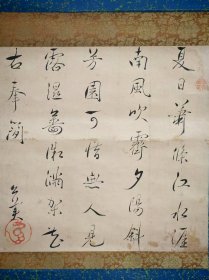 夏日蕭條江水涯
南風吹霽夕陽斜
芳園可惜無人見
露濕薔薇滿架花
古奉簡